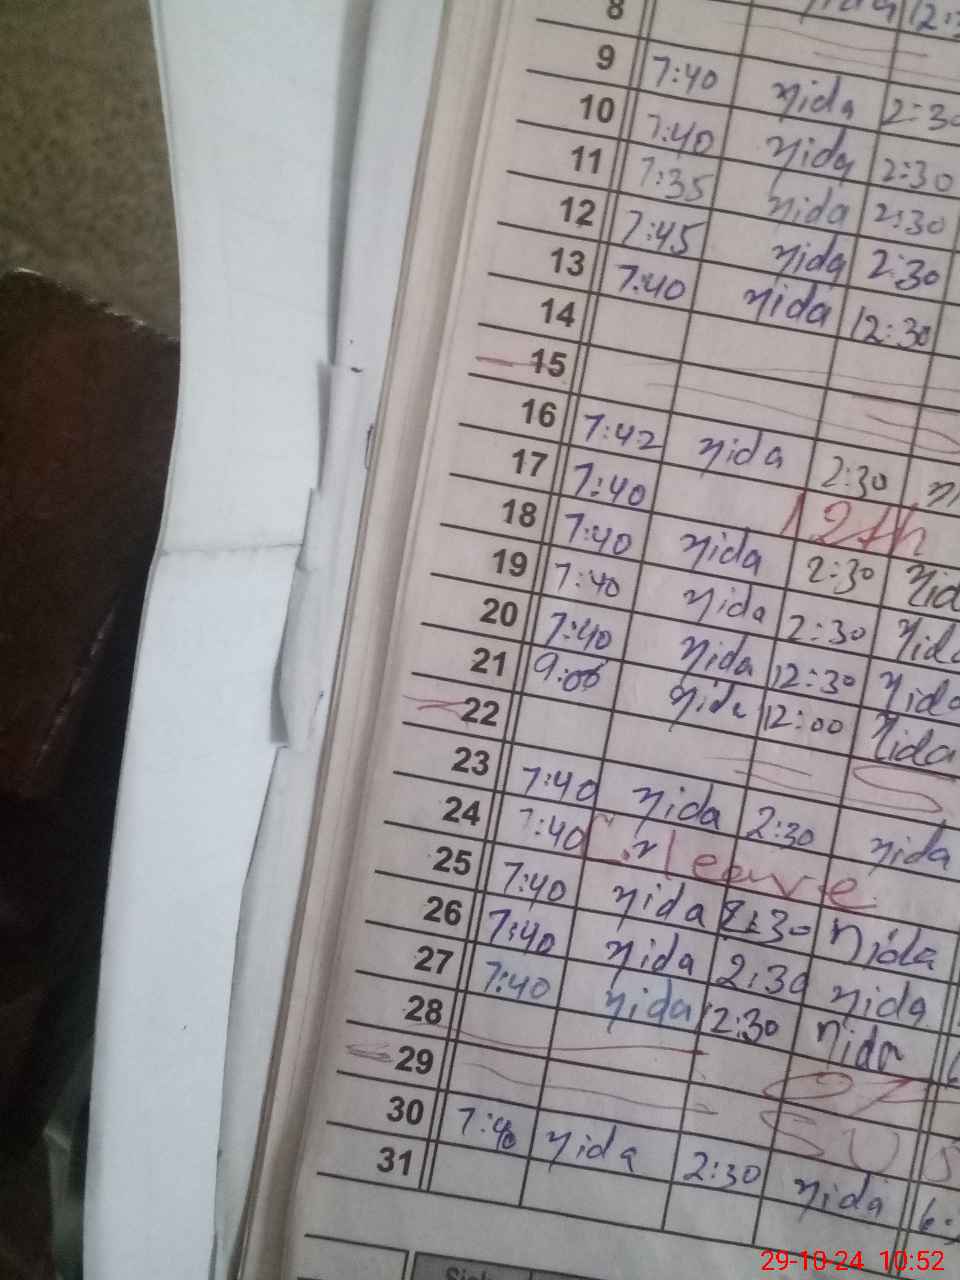 8
9 7:40 nida 2:30
10 7:40 nida 2:30
11 7:35 nida 2:30
12 7:45 nida 2:30
13 7:40 nida 12:30
14
15
16 7:42 nida 2:30
17 7:40 12th
18 7:40 nida 2:30 nid
19 7:40 nida 2:30 nida
20 7:40 nida 12:30 nida
21 9:00 nida 12:00 nida
22
23 7:40 nida 2:30 nida
24 7:40 leave
25 7:40 nida 2:30 nida
26 7:40 nida 2:30 nida
27 7:40 nida 12:30 nida
28
29
30 7:40 nida 2:30 nida
31
29-10-24 10:52